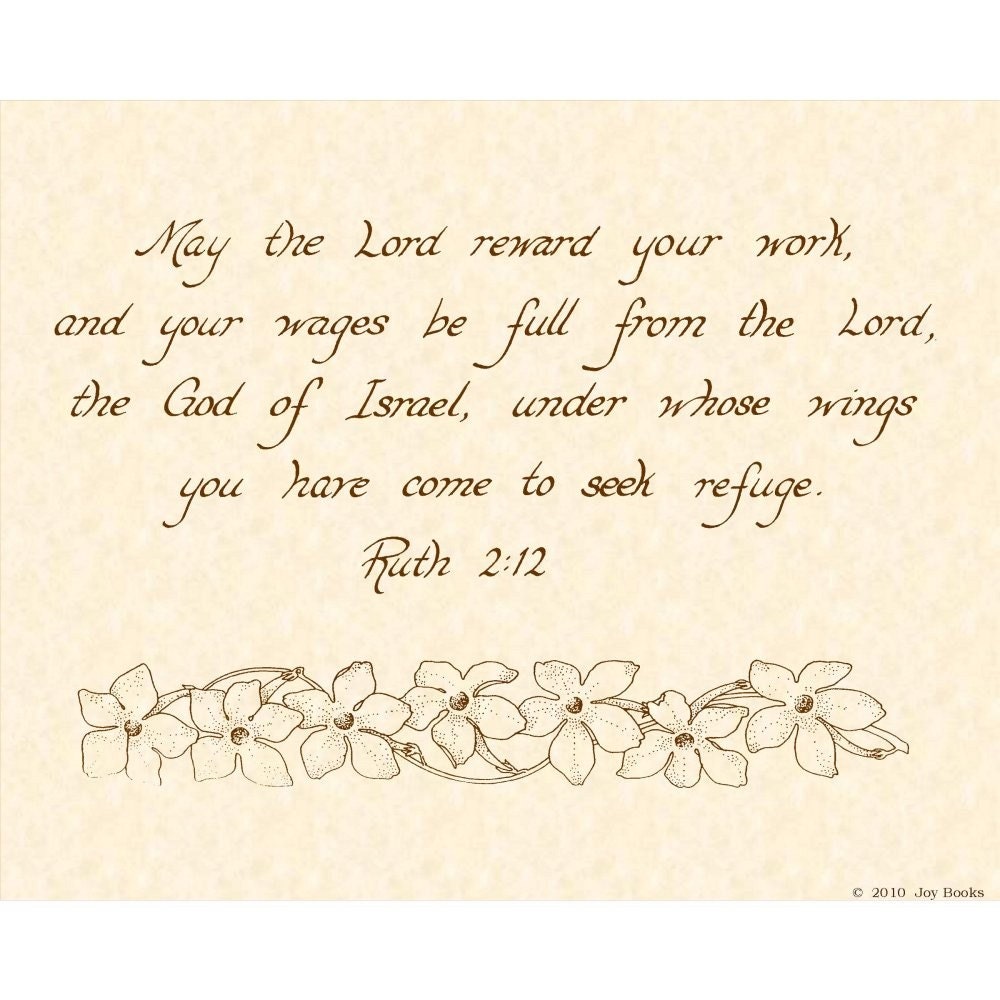 May the Lord reward your work,
and your wages be full from the Lord,
the God of Israel, under whose wings
you have come to seek refuge.
Ruth 2:12
© 2010 Joy Books